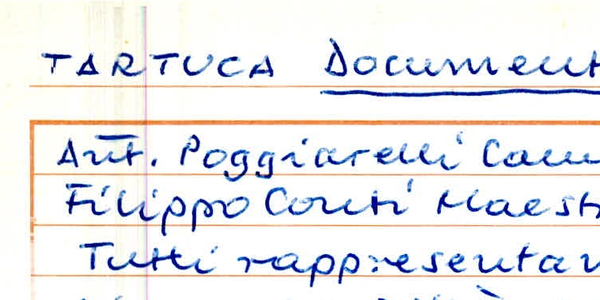 TARTUCA Document
Ant. Poggiarelli Cam
Filippo Conti Maest
Tutti rappresentan